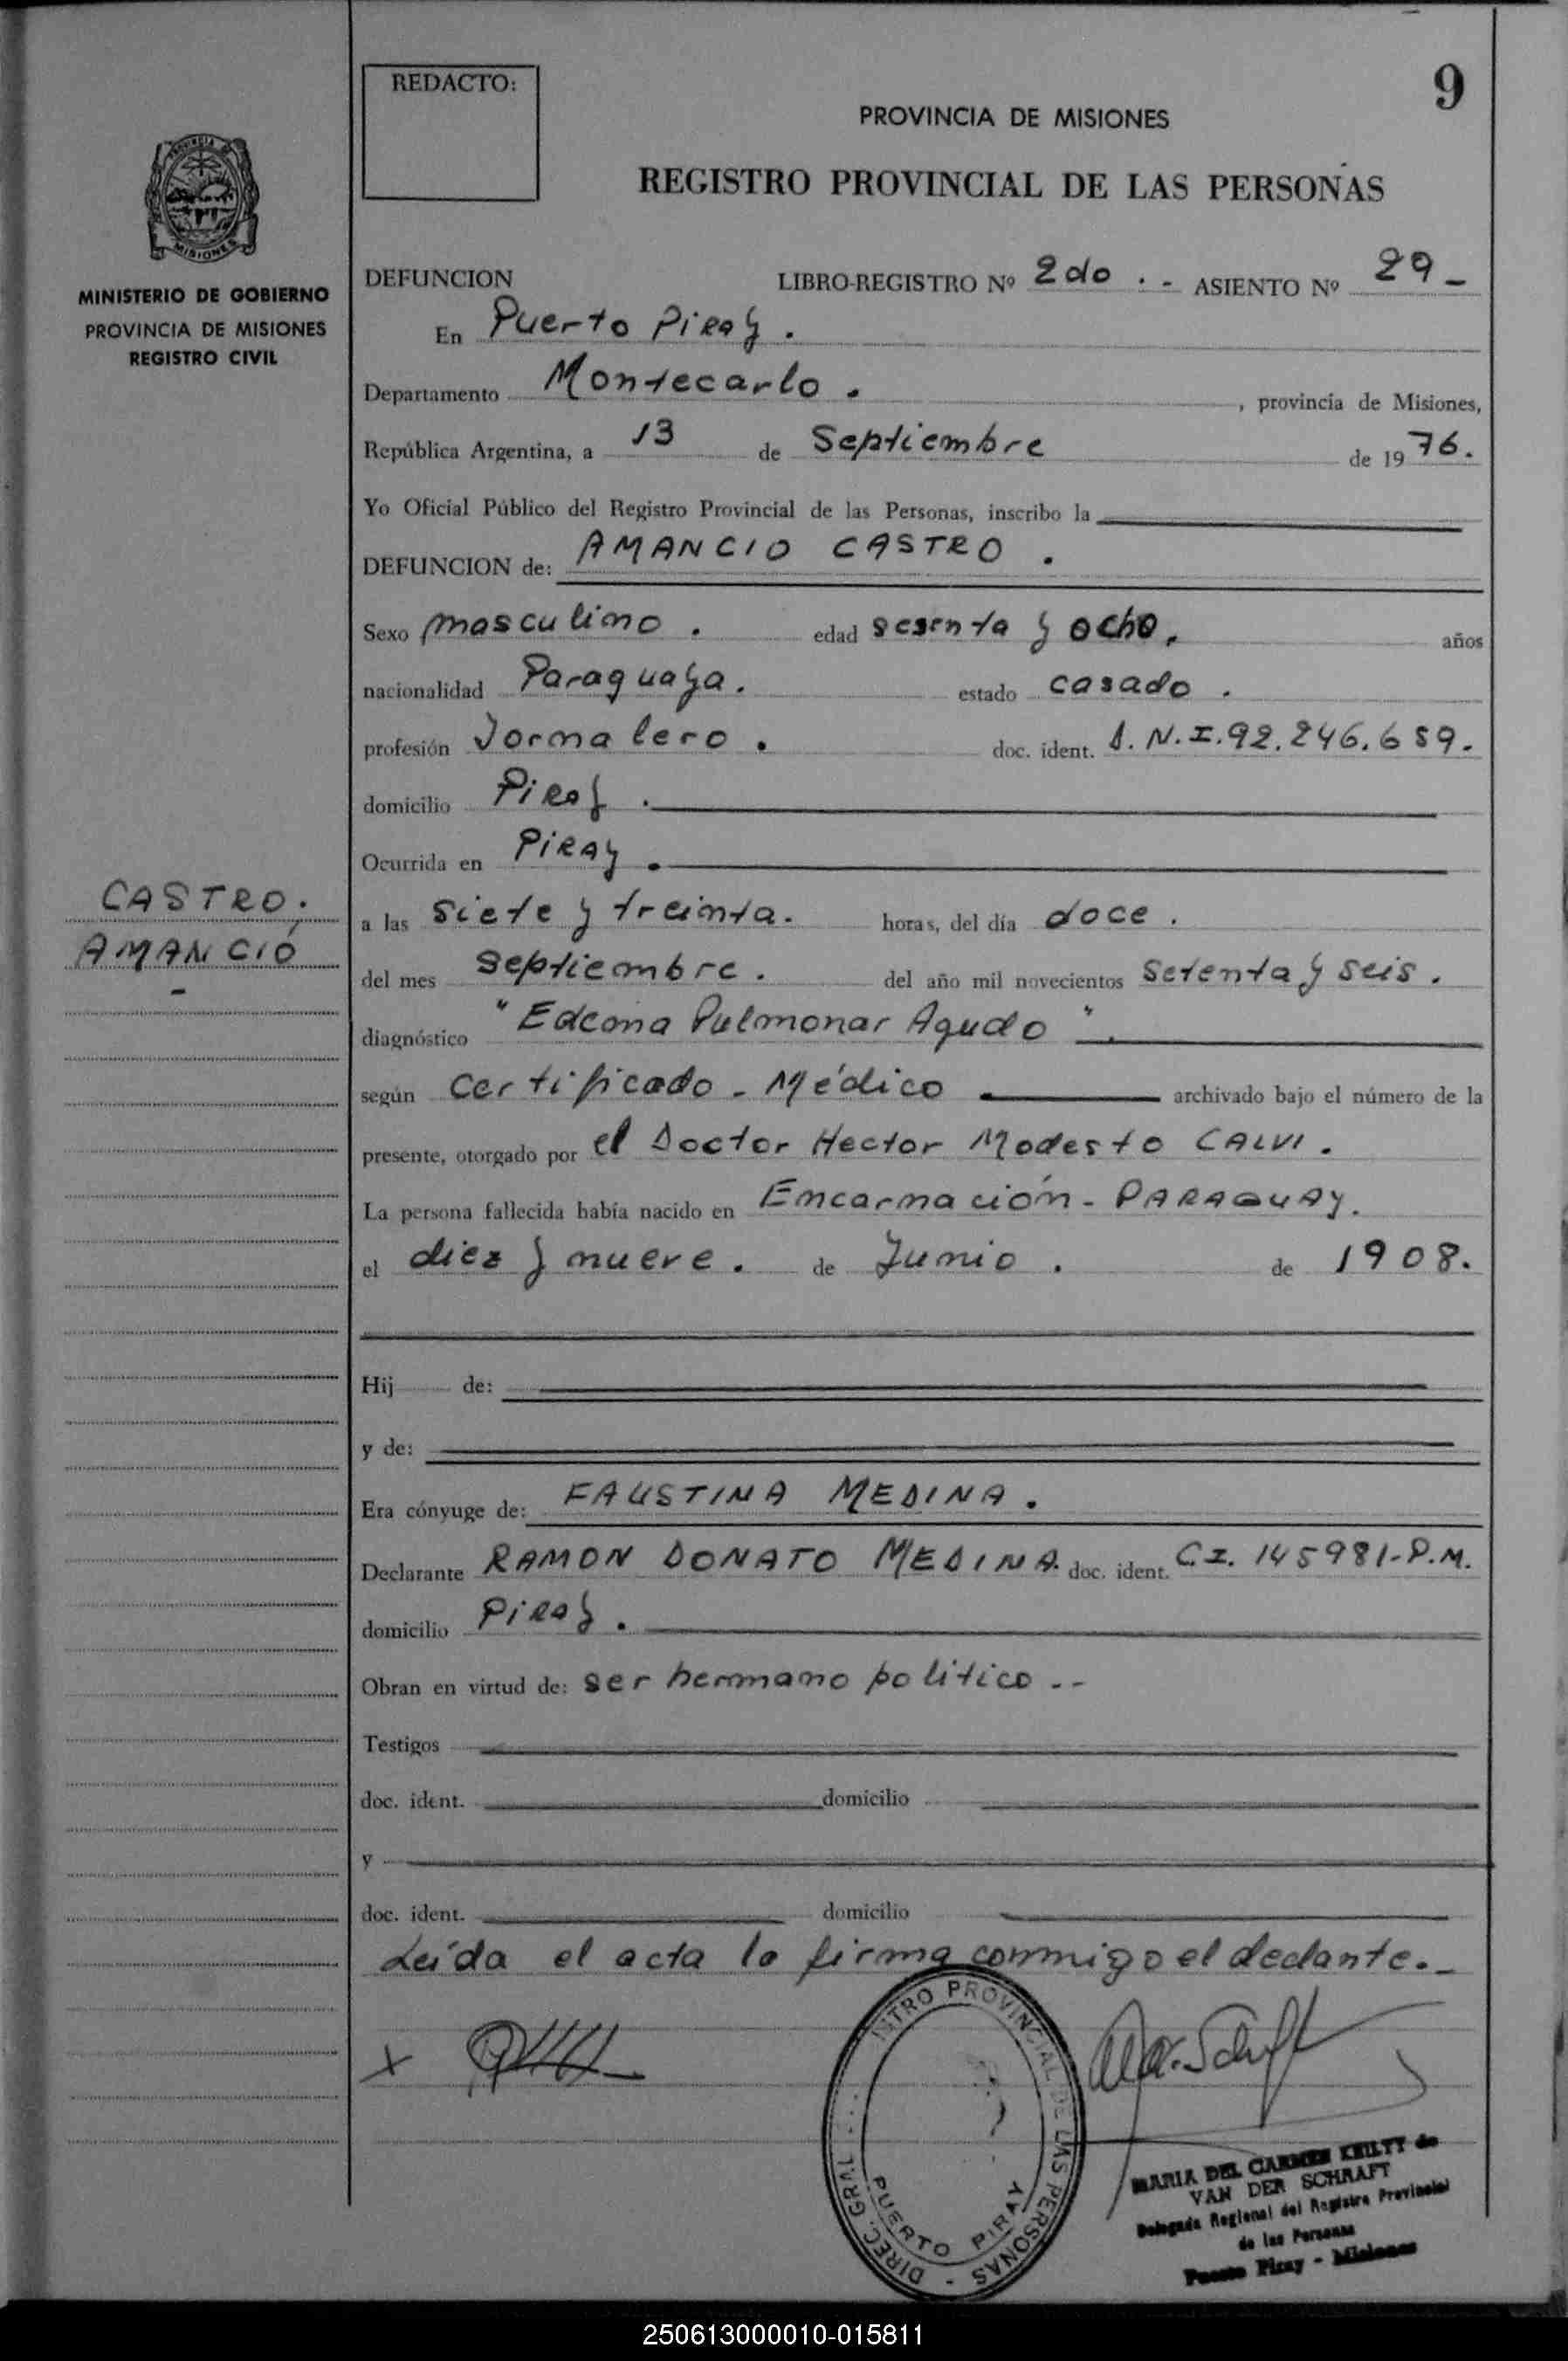 REDACTO:
9
PROVINCIA DE MISIONES
REGISTRO PROVINCIAL DE LAS PERSONAS
MISIONES
MINISTERIO DE GOBIERNO
PROVINCIA DE MISIONES
REGISTRO CIVIL
DEFUNCION LIBRO-REGISTRO Nº 2do . - ASIENTO Nº 29 -
En Puerto Piray .
Departamento Montecarlo . , provincia de Misiones,
República Argentina, a 13 de Septiembre de 1976.
Yo Oficial Público del Registro Provincial de las Personas, inscribo la
DEFUNCION de: AMANCIO CASTRO .
Sexo masculino . edad sesenta y ocho. años
nacionalidad Paraguaya . estado casado .
profesión Jornalero . doc. ident. D.N.I. 92.246.659.
domicilio Piray .
Ocurrida en Piray .
CASTRO.
AMANCIO
-
a las siete y treinta. horas, del día doce .
del mes Septiembre . del año mil novecientos Setenta y seis .
diagnóstico "Edcona Pulmonar Agudo".
según Certificado - Médico archivado bajo el número de la
presente, otorgado por el Doctor Hector Modesto CALVI .
La persona fallecida había nacido en Encarnación - PARAGUAY.
el diez y nueve . de Junio . de 1908.
Hij de:
y de:
Era cónyuge de: FAUSTINA MEDINA .
Declarante RAMON DONATO MEDINA. doc. ident. C.I. 145981-P.M.
domicilio Piray .
Obran en virtud de: ser hermano politico . -
Testigos
doc. ident. domicilio
y
doc. ident. domicilio
Leída el acta la firma conmigo el declante. -
X
PROVINCIAL DE LAS PERSONAS - DIREC. GRAL.
PUERTO PIRAY
MARIA DEL CARMEN KEILTY de
VAN DER SCHRAFT
Delegada Regional del Registro Provincial
de las Personas
Puerto Piray - Misiones
250613000010-015811